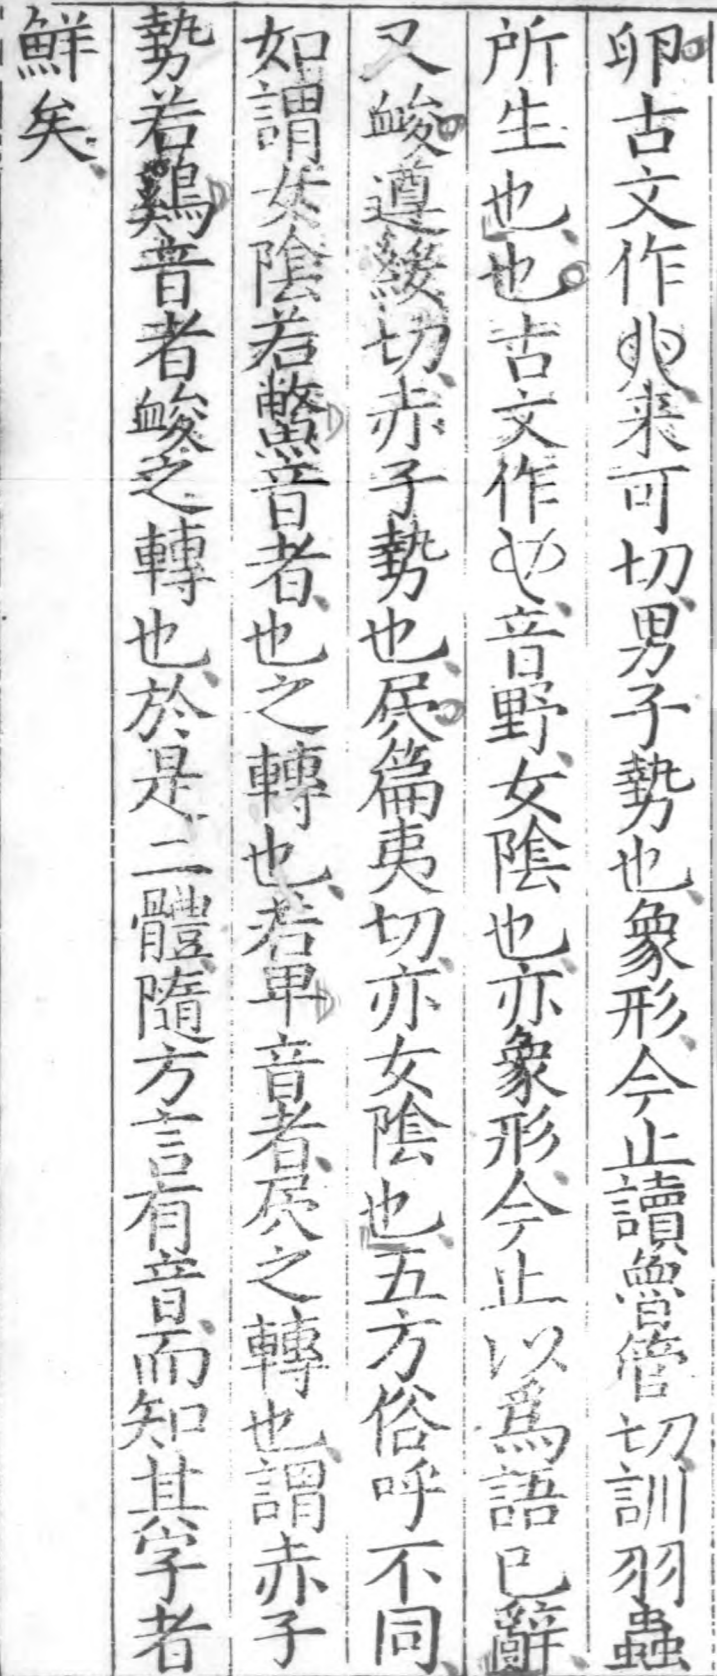 卵古文作𠨎来可切男子勢也象形今止讀魯管切訓羽蟲
所生也也古文作𠃟音野女陰也亦象形今止以爲語已辭
又峻遵綏切赤子勢也𡱁篇夷切亦女陰也五方俗呼不同
如謂女陰若鱉音者也之轉也若卑音者𡱁之轉也謂赤子
勢若鷄音者峻之轉也於是二體隨方言有音而知其字者
鮮矣